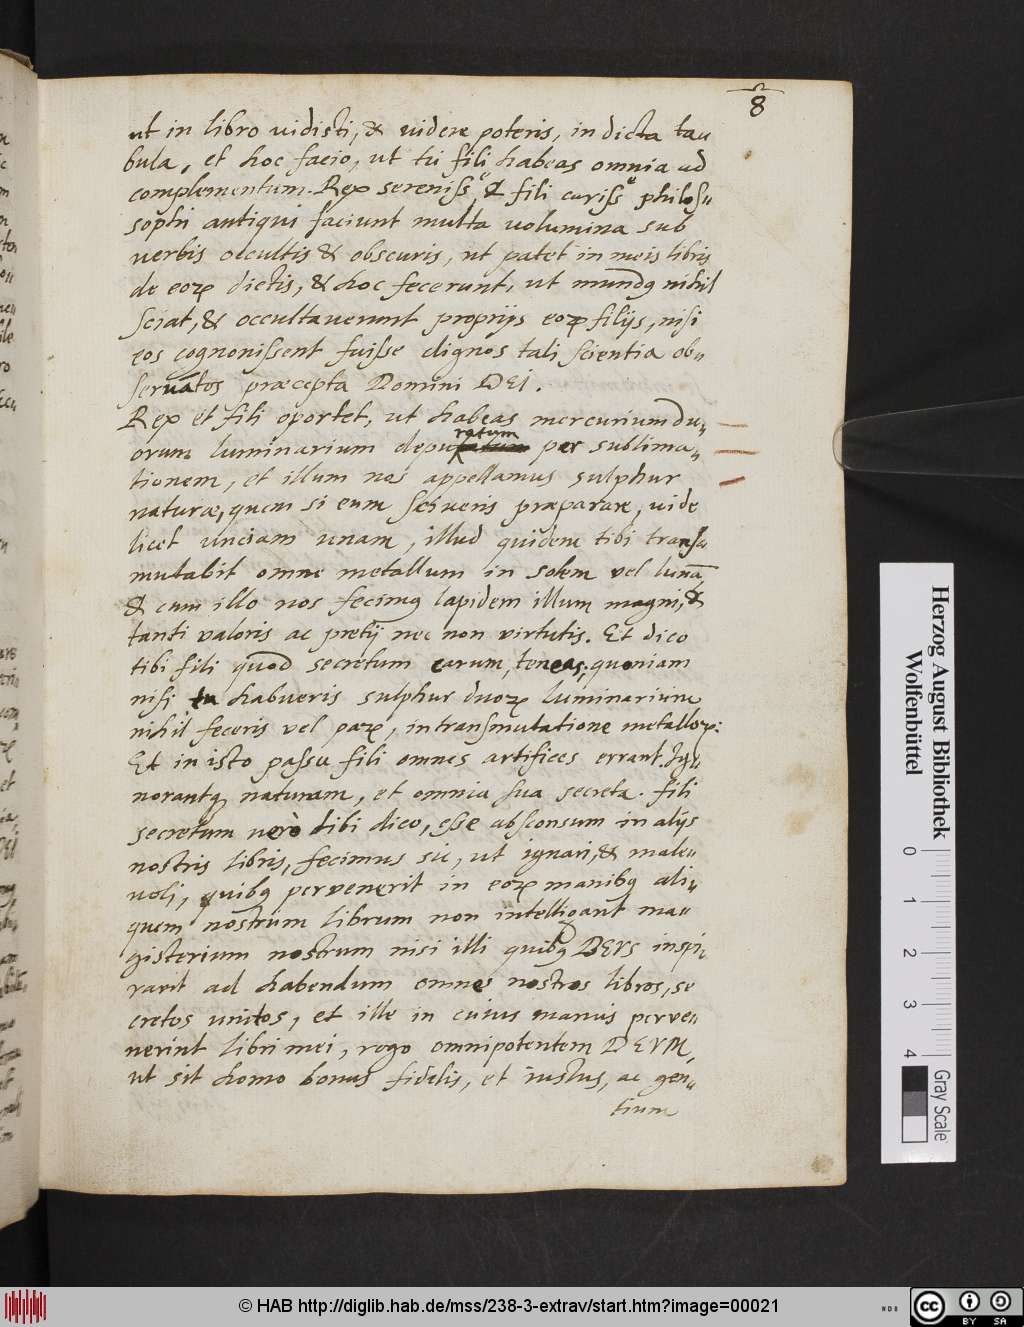 8
ut in libro vidisti, & videre poteris, in dicta ta„
bula, et hoc facio, ut tu fili habeas omnia ad
complementum. Rex sereniss̃ & fili cariss̃ philos„
sophi antiqui faciunt multa volumina sub
verbis occultis & obscuris, ut patet in meis libris
de eoꝝ dictis, & hoc fecerunt, ut mundꝯ nihil
sciat, & occultaverunt proprijs eoꝝ filijs, nisi
eos cognonissent fuisse dignos tali scientia ob„
servatos præcepta Domini DEI.
Rex et fili oportet, ut habeas mercurium du„
orum luminarium depuratum per sublima„
tionem, et illum nos appellamus sulphur
naturæ, quem si eum sciveris præparare, vide
licet unciam unam, illud quidem tibi trans„
mutabit omne metallum in solem vel lunã
& cum illo nos fecimꝯ lapidem illum magni, &
tanti valoris ac pretij nec non virtutis. Et dico
tibi fili quod secretum carum, teneas, quoniam
nisi tu habueris sulphur duoꝝ luminarium
nihil feceris vel paꝝ, in transmutatione metalloꝝ:
Et in isto passu fili omnes artifices errant. Ig„
norantqꝫ naturam, et omnia sua secreta. Fili
secretum verò tibi dico, esse absconsum in alijs
nostris libris, fecimus sic, ut ignari, & male„
voli, quibꝯ pervenerit in eoꝝ manibꝯ ali„
quem nostrum librum non intelligant ma„
gisterium nostrum nisi illi quibꝯ DEVS inspi„
rarit ad habendum omnes nostros libros, se
cretos unitos, et ille in cuius manus perve„
nerint libri mei, rogo omnipotentem DEVM,
ut sit homo bonus fidelis, et iustus, ac gen„
tium
Herzog August Bibliothek
Wolfenbüttel
0 1 2 3 4
Gray Scale
© HAB http://diglib.hab.de/mss/238-3-extrav/start.htm?image=00021
cc BY SA